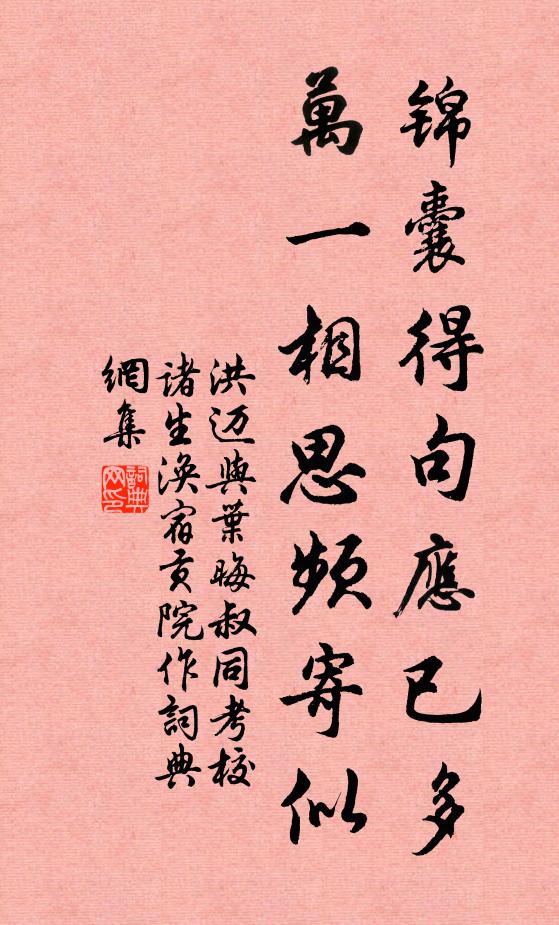 锦囊得句應已多
萬一相思頻寄似
洪迈與葉晦叔同考校
诸生涣宿贡院作詞典
網集
詞典網印